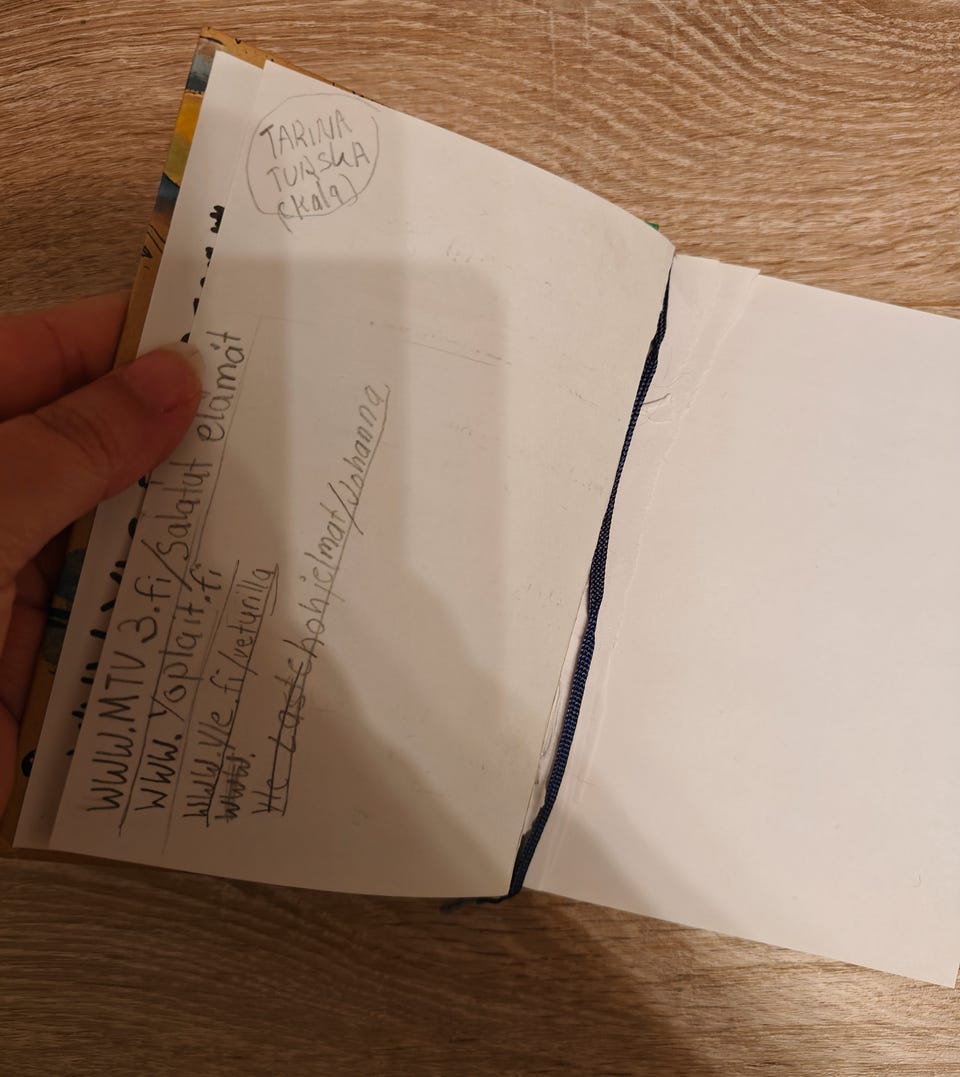 TARINA
TUNSKA
(kala)
WWW.MTV 3.fi/salatut elämät
WWW.Yoplait.fi
WWW.Yle.fi/veturilla
WWW.
Yle Lastehohjelmat/Johanna